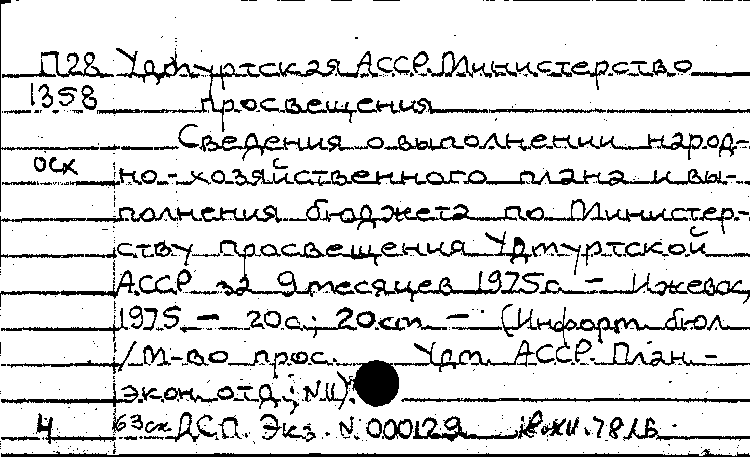 П28 Удмуртская АССР. Министерство
1358 просвещения
Сведения о выполнении народ-
осх но-хозяйственного плана и вы-
полнения бюджета по Министер-
ству просвещения Удмуртской
АССР за 9 месяцев 1975г. - Ижевск,
1975. - 20с.; 20см. - (Информ. бюл.
/М-во прос. Удм. АССР. План.-
экон. отд.; N 11).
4 63сх ДСП. Экз. N 000129